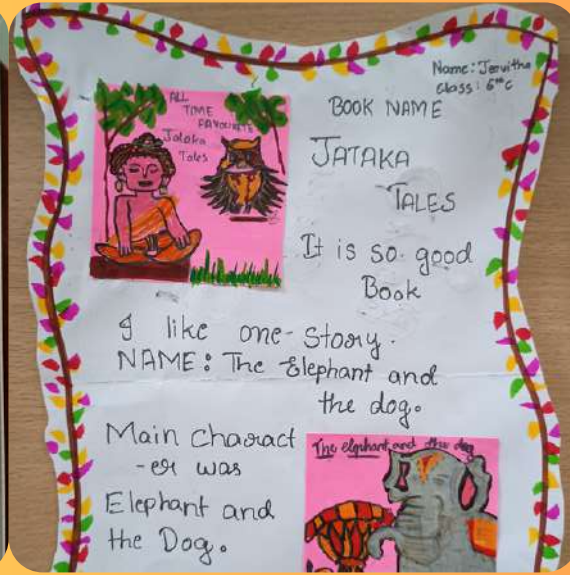 Name: Jesvitha
Class: 6th C
ALL
TIME
FAVOURITE
Jataka
Tales
BOOK NAME
JATAKA
TALES
It is so good
Book
I like one-story.
NAME: The Elephant and
the dog.
Main charact
-er was
Elephant and
the Dog.
The elephant and the dog